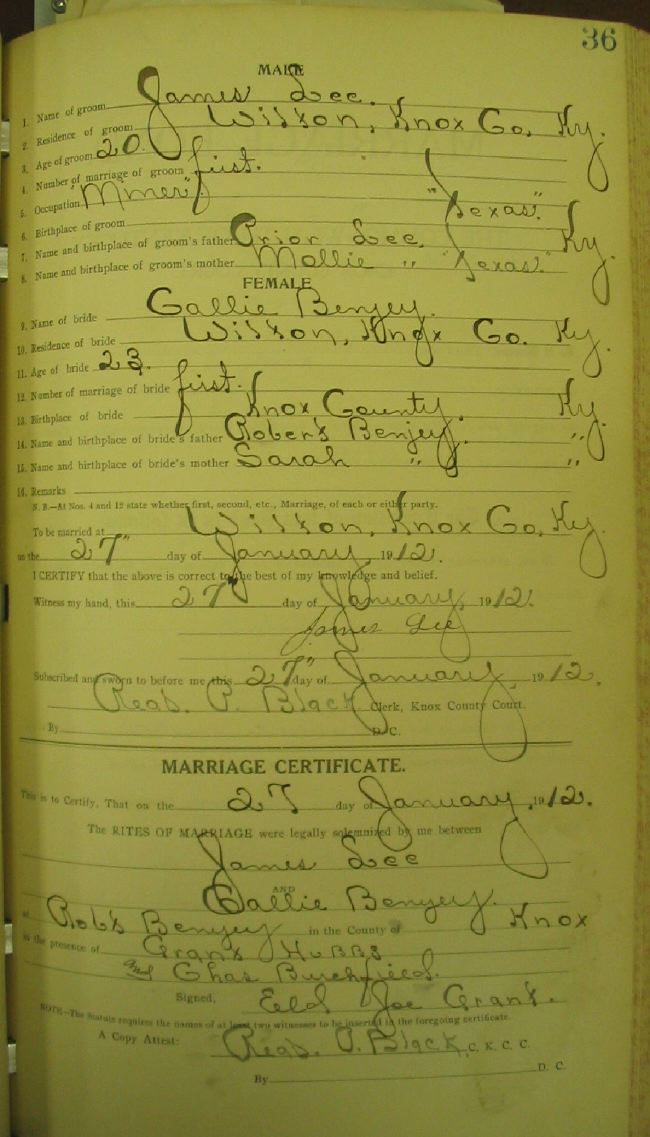 36
MALE
1. Name of groom James Lee.
2. Residence of groom Wilson, Knox Co, Ky.
3. Age of groom 20.
4. Number of marriage of groom first.
5. Occupation "Miner".
6. Birthplace of groom "Texas".
7. Name and birthplace of groom's father Prior Lee. Ky.
8. Name and birthplace of groom's mother Mollie " "Texas"
FEMALE
9. Name of bride Callie Benjey.
10. Residence of bride Wilson, Knox Co. Ky.
11. Age of bride 23.
12. Number of marriage of bride first.
13. Birthplace of bride Knox County, Ky.
14. Name and birthplace of bride's father Robert Benjey, "
15. Name and birthplace of bride's mother Sarah " "
16. Remarks
N. B.—At Nos. 4 and 12 state whether first, second, etc., Marriage, of each or either party.
To be married at Wilson, Knox Co, Ky.
on the 27" day of January 1912.
I CERTIFY that the above is correct to the best of my knowledge and belief.
Witness my hand, this 27" day of January, 1912.
James Lee
Subscribed and sworn to before me this 27" day of January, 1912.
Read. P. Black Clerk, Knox County Court.
By D. C.
MARRIAGE CERTIFICATE.
This is to Certify, That on the 27 day of January, 1912.
The RITES OF MARRIAGE were legally solemnized by me between
James Lee
AND
Callie Benyey.
at Rob's Benyey in the County of Knox
in the presence of Grant Hubbs
and Chas Burchfield.
Signed, Eld Joe Grant.
NOTE—The Statute requires the names of at least two witnesses to be inserted in the foregoing certificate.
A Copy Attest: Read. P. Black, C. K. C. C.
By D. C.